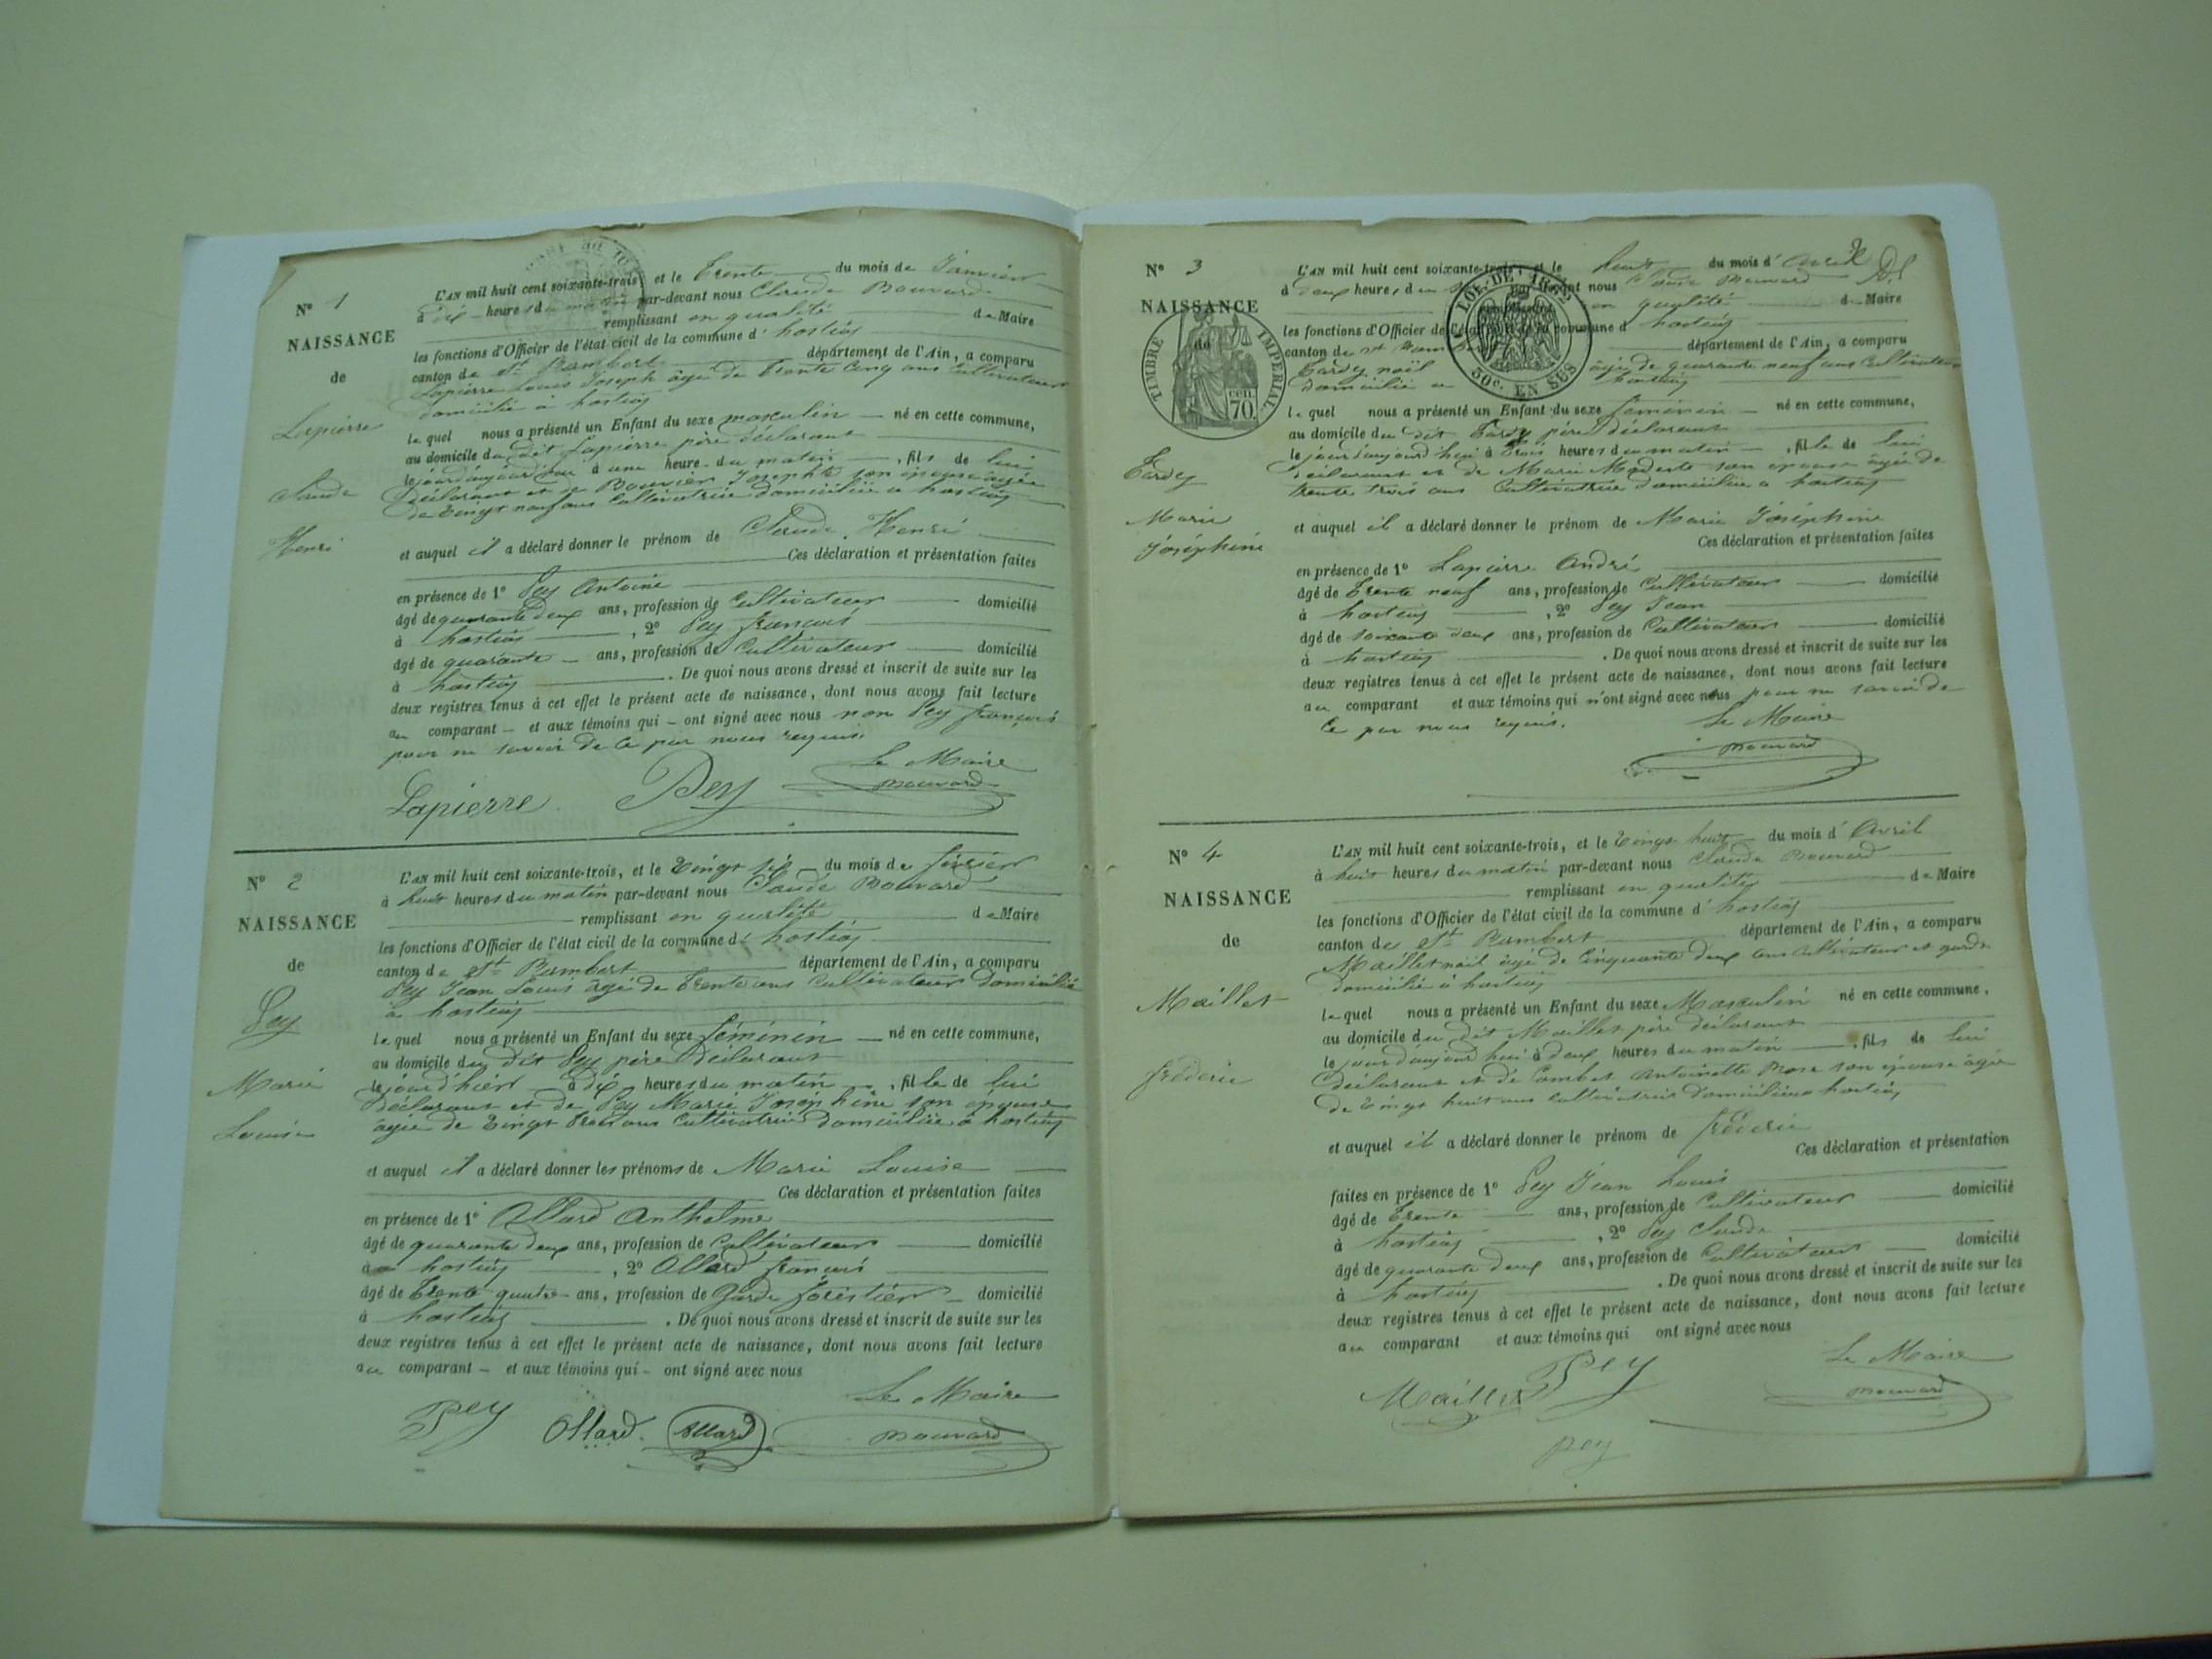 N° 1
NAISSANCE
de
Lapierre
Claude
Henri
L'AN mil huit cent soixante-trois, et le trente du mois de Janvier
à dix heures du matin par-devant nous Claude
remplissant en qualité de Maire
les fonctions d'Officier de l'état civil de la commune d'hostiaz
canton de St Rambert département de l'Ain, a comparu
Lapierre Louis Joseph âgé de trente cinq ans Cultivateur
domicilié à hostiaz
lequel nous a présenté un Enfant du sexe masculin né en cette commune,
au domicile du dit Lapierre père déclarant
le jourd'aujourd'hui à une heure du matin, fils de lui
déclarant et de Bouvier Josephte son épouse âgée
de vingt neuf ans Cultivatrice domiciliée à hostiaz
et auquel il a déclaré donner le prénom de Claude Henri
Ces déclaration et présentation faites
en présence de 1° Pey Antoine
âgé de quarante deux ans, profession de Cultivateur domicilié
à hostiaz, 2° Pey françois
âgé de quarante ans, profession de Cultivateur domicilié
à hostiaz. De quoi nous avons dressé et inscrit de suite sur les
deux registres tenus à cet effet le présent acte de naissance, dont nous avons fait lecture
au comparant et aux témoins qui ont signé avec nous non Pey françois
pour ne savoir de ce par nous requis.
Le Maire
Lapierre Pey
N° 2
NAISSANCE
de
Pey
Marie
Louise
L'AN mil huit cent soixante-trois, et le vingt six du mois de février
à huit heures du matin par-devant nous Claude
remplissant en qualité de Maire
les fonctions d'Officier de l'état civil de la commune d'hostiaz
canton de St Rambert département de l'Ain, a comparu
Pey Jean Louis âgé de trente ans Cultivateur domicilié
à hostiaz
lequel nous a présenté un Enfant du sexe féminin né en cette commune,
au domicile du dit Pey père déclarant
le jour d'hier à dix heures du matin, fille de lui
déclarant et de Pey Marie Joséphine son épouse
âgée de vingt trois ans Cultivatrice domiciliée à hostiaz
et auquel il a déclaré donner les prénoms de Marie Louise
Ces déclaration et présentation faites
en présence de 1° Allard Anthelme
âgé de quarante deux ans, profession de Cultivateur domicilié
à hostiaz, 2° Allard françois
âgé de trente quatre ans, profession de Garde forestier domicilié
à hostiaz. De quoi nous avons dressé et inscrit de suite sur les
deux registres tenus à cet effet le présent acte de naissance, dont nous avons fait lecture
au comparant et aux témoins qui ont signé avec nous
Le Maire
Pey Allard. Allard
N° 3
NAISSANCE
de
TIMBRE IMPERIAL.
70 cen.
LOI DE 1862
50c. EN SUS
Tardy
Marie
Joséphine
L'AN mil huit cent soixante-trois, et le huit du mois d'avril
à deux heures du par-devant nous Claude
en qualité de Maire
les fonctions d'Officier de l'état civil de la commune d'hostiaz
canton de St Rambert département de l'Ain, a comparu
Tardy noël âgé de quarante neuf ans Cultivateur
domicilié à hostiaz
lequel nous a présenté un Enfant du sexe féminin né en cette commune,
au domicile du dit Tardy père déclarant
le jour d'aujourd'hui à trois heures du matin, fille de lui
déclarant et de Marin Modeste son épouse âgée de
trente trois ans Cultivatrice domiciliée à hostiaz
et auquel il a déclaré donner le prénom de Marie Joséphine
Ces déclaration et présentation faites
en présence de 1° Lapierre André
âgé de trente neuf ans, profession de Cultivateur domicilié
à hostiaz, 2° Pey Jean
âgé de soixante deux ans, profession de Cultivateur domicilié
à hostiaz. De quoi nous avons dressé et inscrit de suite sur les
deux registres tenus à cet effet le présent acte de naissance, dont nous avons fait lecture
au comparant et aux témoins qui n'ont signé avec nous pour ne savoir de
ce par nous requis.
Le Maire
N° 4
NAISSANCE
de
Maillet
fréderic
L'AN mil huit cent soixante-trois, et le vingt huit du mois d'Avril
à huit heures du matin par-devant nous Claude
remplissant en qualité de Maire
les fonctions d'Officier de l'état civil de la commune d'hostiaz
canton de St Rambert département de l'Ain, a comparu
Maillet noël âgé de cinquante deux ans cultivateur et garde
domicilié à hostiaz
lequel nous a présenté un Enfant du sexe Masculin né en cette commune,
au domicile du dit Maillet père déclarant
le jour d'aujourd'hui à deux heures du matin, fils de lui
déclarant et de Combet Antoinette Rose son épouse âgée
de vingt huit ans cultivatrice domiciliée à hostiaz
et auquel il a déclaré donner le prénom de fréderic
Ces déclaration et présentation
faites en présence de 1° Pey Jean Louis
âgé de trente ans, profession de Cultivateur domicilié
à hostiaz, 2° Pey Claude
âgé de quarante deux ans, profession de Cultivateur domicilié
à hostiaz. De quoi nous avons dressé et inscrit de suite sur les
deux registres tenus à cet effet le présent acte de naissance, dont nous avons fait lecture
au comparant et aux témoins qui ont signé avec nous
Le Maire
Maillet Pey
pey